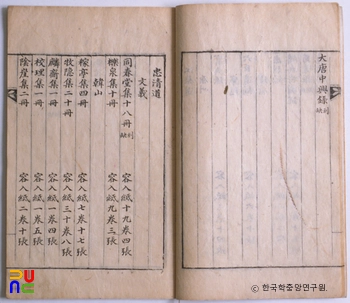 大唐中興錄 刓缺
忠清道
文義
同春堂集十八冊 刓缺 容入紙十九卷四張
櫟泉集十冊 容入紙九卷三張
韓山
稼亭集四冊 容入紙七卷十七張
牧隱集二十冊 容入紙三十卷八張
麟齋集一冊 容入紙一卷四張
校理集一冊 容入紙一卷五張
陰崖集二冊 容入紙二卷十張
PUNC
ⓒ 한국학중앙연구원.